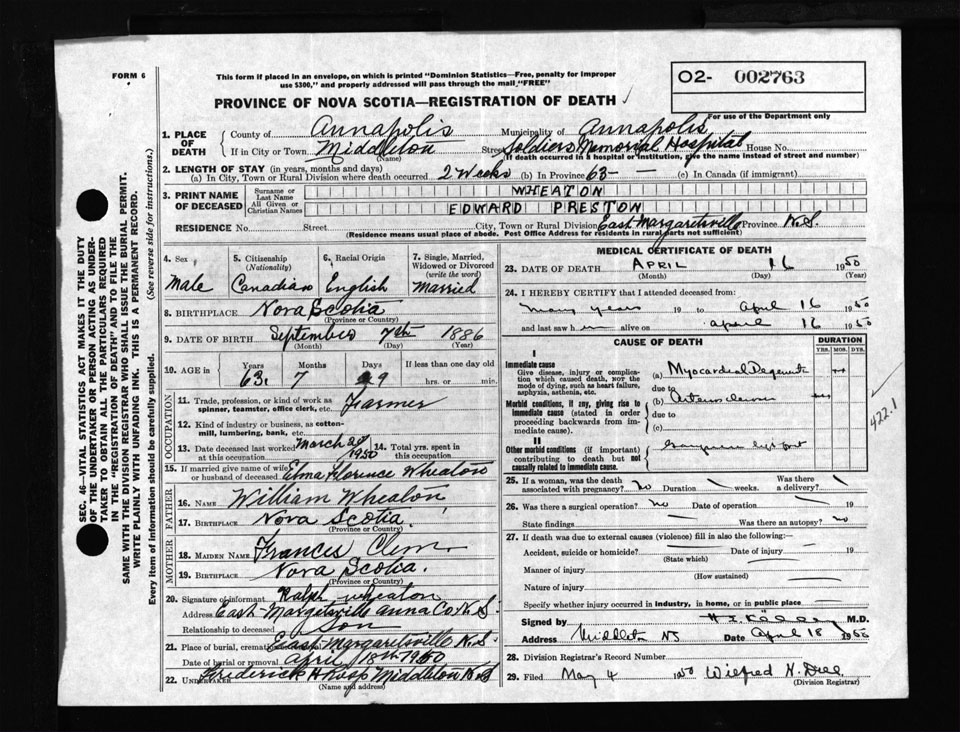 FORM 6
This form if placed in an envelope, on which is printed "Dominion Statistics—Free, penalty for improper
use $300," and properly addressed will pass through the mail "FREE"
O2- 002763
For use of the Department only
PROVINCE OF NOVA SCOTIA—REGISTRATION OF DEATH
SEC. 46—VITAL STATISTICS ACT MAKES IT THE DUTY
OF THE UNDERTAKER OR PERSON ACTING AS UNDER-
TAKER TO OBTAIN ALL THE PARTICULARS REQUIRED
IN THE "REGISTRATION OF DEATH" AND TO FILE THE
SAME WITH THE DIVISION REGISTRAR WHO SHALL ISSUE THE BURIAL PERMIT.
WRITE PLAINLY WITH UNFADING INK. THIS IS A PERMANENT RECORD.
Every item of information should be carefully supplied. (See reverse side for instructions.)
1. PLACE OF DEATH
County of Annapolis Municipality of Annapolis
If in City or Town Middleton (Name) Street Soldiers Memorial Hospital House No.
(If death occurred in a hospital or institution, give the name instead of street and number)
2. LENGTH OF STAY (in years, months and days)
(a) In City, Town or Rural Division where death occurred 2 Weeks (b) In Province 63 — (c) In Canada (if immigrant)
3. PRINT NAME OF DECEASED
Surname or Last Name WHEATON
All Given or Christian Names EDWARD PRESTON
RESIDENCE No. Street City, Town or Rural Division East Margaretsville Province N.S.
(Residence means usual place of abode. Post Office Address for residents in rural parts not sufficient)
4. Sex Male
5. Citizenship (Nationality) Canadian
6. Racial Origin English
7. Single, Married, Widowed or Divorced (write the word) Married
8. BIRTHPLACE Nova Scotia
(Province or Country)
9. DATE OF BIRTH September 7th 1886
(Month) (Day) (Year)
10. AGE in Years 63 Months 7 Days 9 If less than one day old
hrs. or min.
OCCUPATION
11. Trade, profession, or kind of work as
spinner, teamster, office clerk, etc. Farmer
12. Kind of industry or business, as cotton-
mill, lumbering, bank, etc.
13. Date deceased last worked at this occupation March 1950
14. Total yrs. spent in this occupation
15. If married give name of wife or husband of deceased Florence Wheaton
FATHER
16. NAME William Wheaton
17. BIRTHPLACE Nova Scotia
(Province or Country)
MOTHER
18. MAIDEN NAME Frances Clem
19. BIRTHPLACE Nova Scotia.
(Province or Country)
20. Signature of informant Ralph Wheaton
Address East Margetsville Anna Co. N.S.
Relationship to deceased Son
21. Place of burial, East Margaretsville N.S.
Date of burial or removal April 18th 1950
22. UNDERTAKER Frederick Middleton N.S
(Name and address)
MEDICAL CERTIFICATE OF DEATH
23. DATE OF DEATH APRIL 16 1950
(Month) (Day) (Year)
24. I HEREBY CERTIFY that I attended deceased from:
many years 19 to April 16 1950
and last saw him alive on April 16 1950
CAUSE OF DEATH
DURATION
YRS. MOS. DYS.
I
Immediate cause
Give disease, injury or complication which caused death, NOT the mode of dying, such as heart failure, asphyxia, asthenia, etc.
(a) Myocardial
due to
Morbid conditions, if any, giving rise to immediate cause (stated in order proceeding backwards from immediate cause).
(b)
due to
(c)
II
Other morbid conditions (if important) contributing to death but not causally related to immediate cause.
422.1
25. If a woman, was the death associated with pregnancy? no Duration weeks. Was there a delivery?
26. Was there a surgical operation? no Date of operation 19
State findings Was there an autopsy? no
27. If death was due to external causes (violence) fill in also the following:—
Accident, suicide or homicide? Date of injury 19
(State which)
Manner of injury
(How sustained)
Nature of injury
Specify whether injury occurred in industry, in home, or in public place
Signed by M.D.
Address Middleton NS Date April 18 1950
28. Division Registrar's Record Number
29. Filed May 4 1950 Wilfred H.
(Division Registrar)